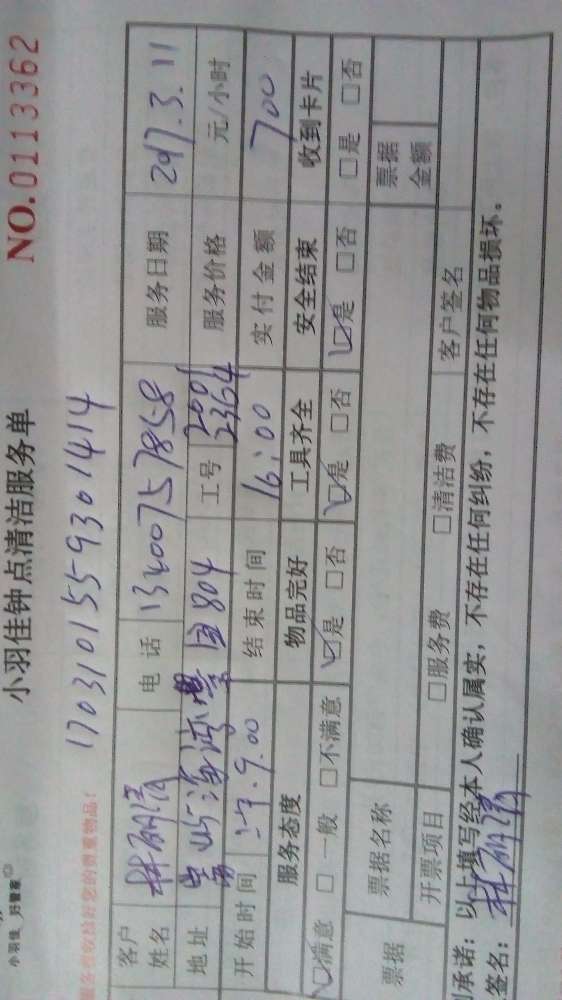 小羽佳 好管家
小羽佳钟点清洁服务单
NO.0113362
您的贵重物品!
170310155930 1414
客户姓名 电话 13400757858 服务日期 2017.3.11
地址 804 工号 2001 2364 服务价格 元/小时
开始时间 9.00 结束时间 16:00 实付金额 700
服务态度 物品完好 工具齐全 安全结束 收到卡片
☑满意 □一般 □不满意 ☑是 □否 ☑是 □否 ☑是 □否 □是 □否
票据 票据名称 票据金额
开票项目 □服务费 □清洁费 客户签名
承诺:以上填写经本人确认属实,不存在任何纠纷,不存在任何物品损坏。
签名: